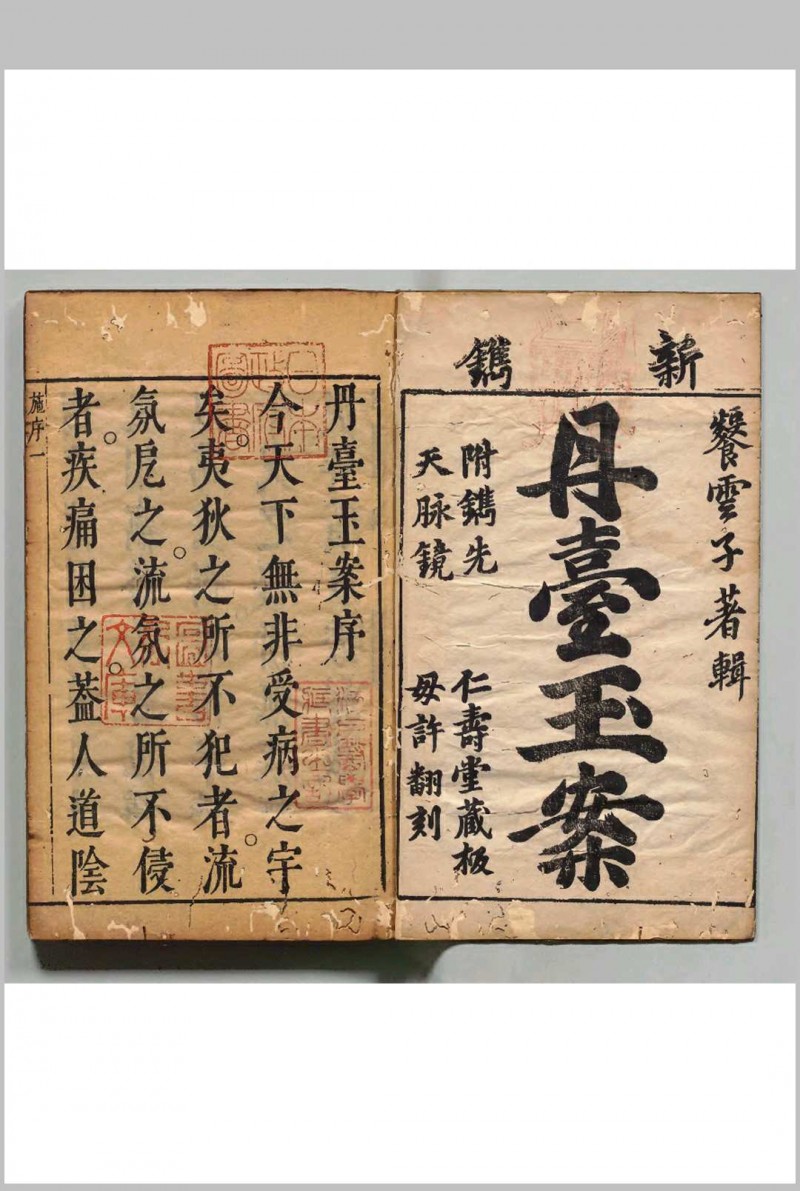 新鐫
餐雲子著輯
丹臺玉案
附鐫先
天脉鏡
仁壽堂蔵板
毋許翻刻
丹臺玉案序
今天下無非受病之宇
矣。夷狄之所不犯者。流
氛戹之。流氛之所不侵
者。疾痛困之。葢人道陰
施序一
日本政府圖書